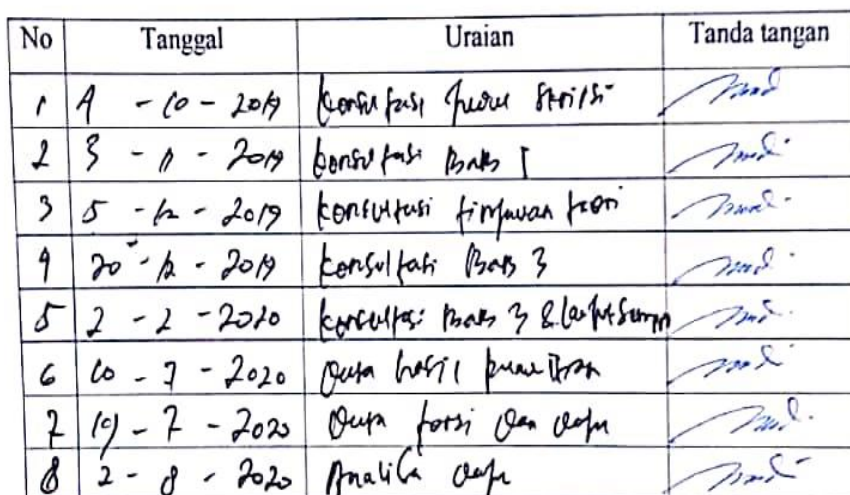 No Tanggal Uraian Tanda tangan
1 4 - 10 - 2019 Konsultasi Judul Skripsi
2 3 - 11 - 2019 Konsultasi Bab I
3 5 - 12 - 2019 Konsultasi tinjauan teori
4 20 - 12 - 2019 Konsultasi Bab 3
5 2 - 2 - 2020 Konsultasi Bab 3 &
6 10 - 7 - 2020 Data hasil penelitian
7 19 - 7 - 2020 Data dan data
8 2 - 8 - 2020 Analisa data